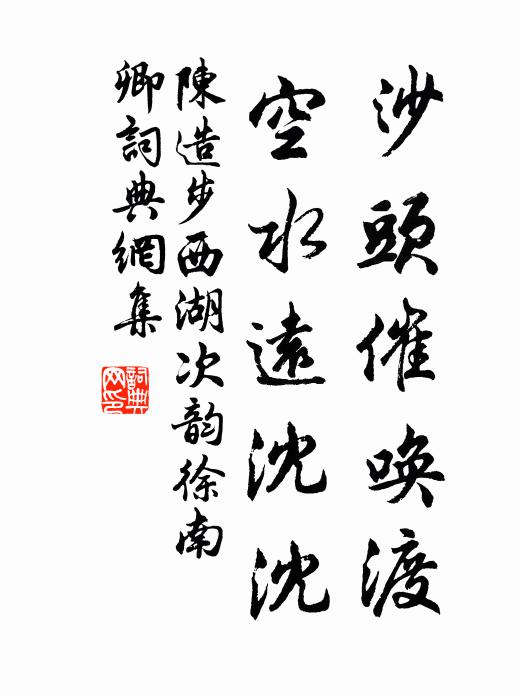 沙頭催喚渡
空水遠沈沈
陳造步西湖次韵徐南
卿詞典網集
詞典
网印